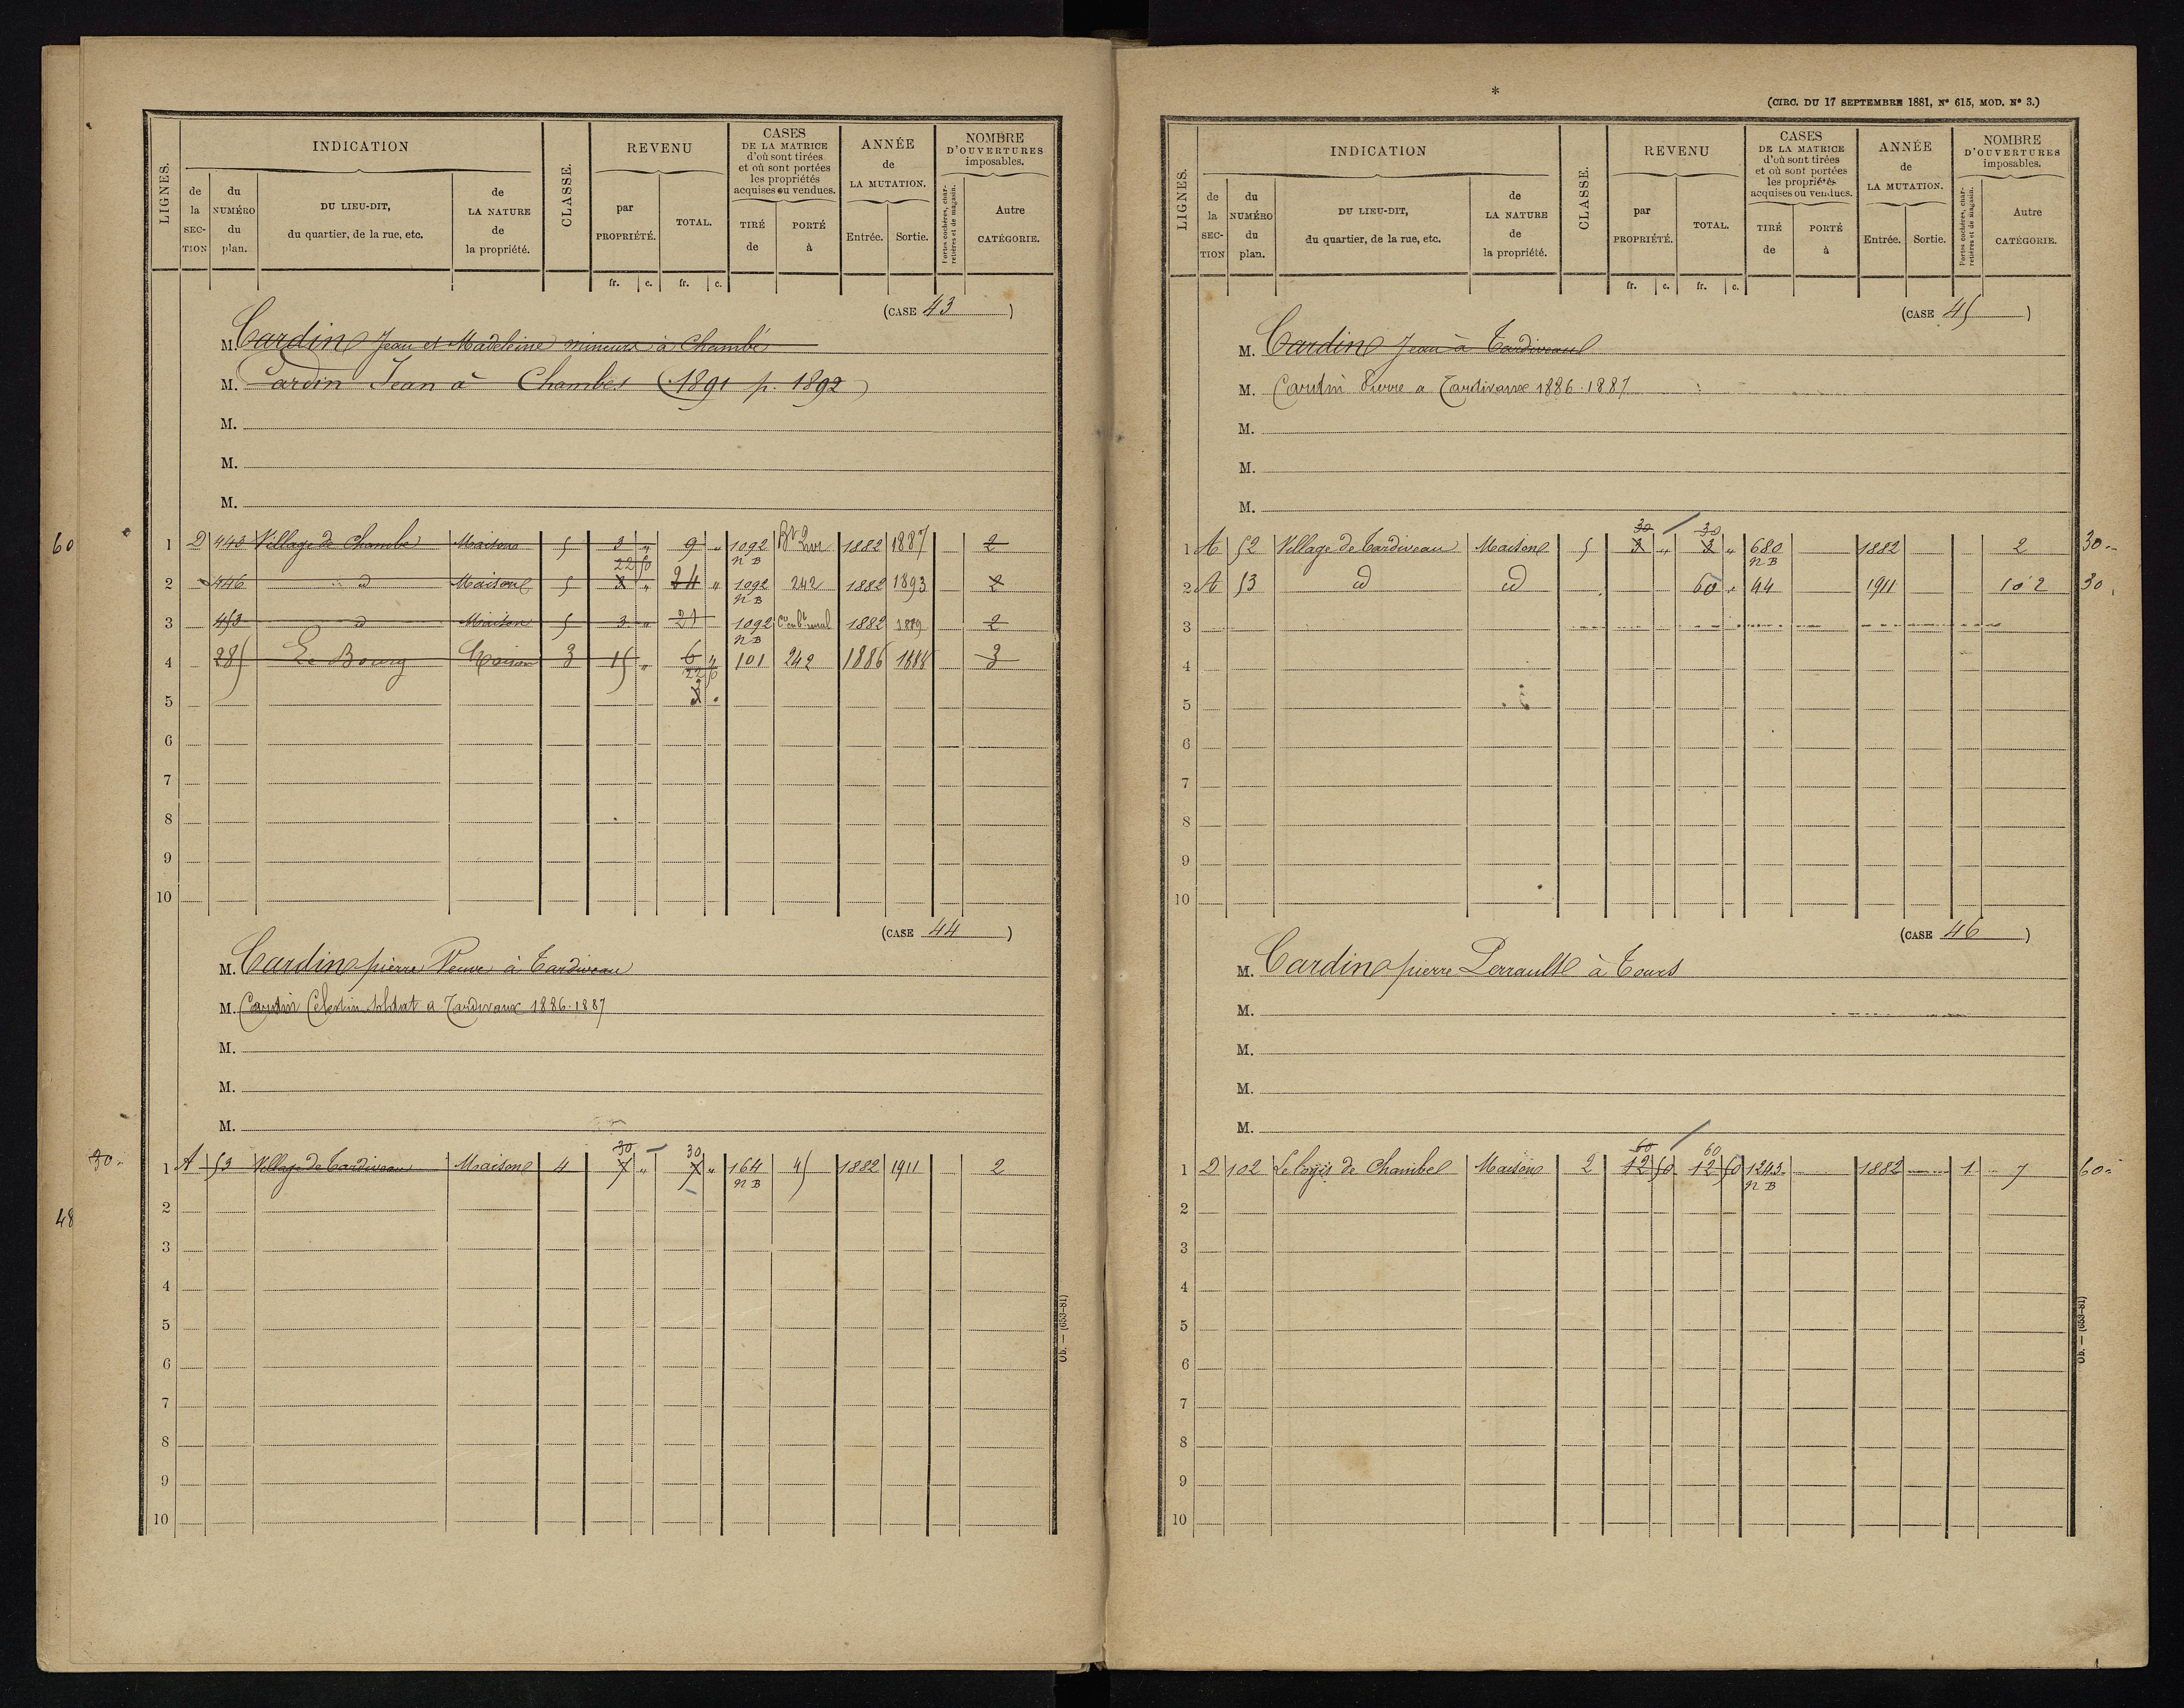 LIGNES.
INDICATION
de la SECTION
du NUMÉRO du plan.
DU LIEU-DIT, du quartier, de la rue, etc.
de LA NATURE de la propriété.
CLASSE.
REVENU
par PROPRIÉTÉ.
TOTAL.
fr. c. fr. c.
CASES DE LA MATRICE d'où sont tirées et où sont portées les propriétés acquises ou vendues.
TIRÉ de
PORTÉ à
ANNÉE de LA MUTATION.
Entrée. Sortie.
NOMBRE D'OUVERTURES imposables.
Portes cochères, charretières et de magasin.
Autre CATÉGORIE.
(CASE 43)
M. Cardin Jean et Madeleine mineurs à Chambé
M. Cardin Jean à Chambé (1891 p. 1892)
M.
M.
M.
60
1 D 443 Village de Chambé Maison 5 3 " 9 " 1092 NB 1882 1887 2
2 446 d Maison 5 22 50 " 24 " 1092 NB 242 1882 1893 2
3 453 d Maison 5 3 " 21 1092 NB 1882 1889 2
4 285 Le Bourg Maison 3 15 " 6 " 101 242 1886 1888 3
22 50
5
6
7
8
9
10
(CASE 44)
M. Cardin pierre Veuve à Tardiveau
M. Cardin Célestin soldat a Tardivaux 1886.1887
M.
M.
M.
30
30 30
1 A 53 Village de Tardiveau Maison 4 7 " 7 " 164 NB 45 1882 1911 2
48
2
3
4
5
6
7
8
9
10
Ob. — (653-81)
*
(CIRC. DU 17 SEPTEMBRE 1881, N° 615, MOD. N° 3.)
LIGNES.
INDICATION
de la SECTION
du NUMÉRO du plan.
DU LIEU-DIT, du quartier, de la rue, etc.
de LA NATURE de la propriété.
CLASSE.
REVENU
par PROPRIÉTÉ.
TOTAL.
fr. c. fr. c.
CASES DE LA MATRICE d'où sont tirées et où sont portées les propriétés acquises ou vendues.
TIRÉ de
PORTÉ à
ANNÉE de LA MUTATION.
Entrée. Sortie.
NOMBRE D'OUVERTURES imposables.
Portes cochères, charretières et de magasin.
Autre CATÉGORIE.
(CASE 45)
M. Cardin Jean à Tardiveau
M. Cardin Pierre a Tardivaux 1886.1887
M.
M.
M.
30 30
1 A 52 Village de Tardiveau Maison 5 3 " 3 " 680 NB 1882 2 30
2 A 53 id id 60 " 44 1911 2 30
3
4
5
6
7
8
9
10
(CASE 46)
M. Cardin pierre Perrault à Tours
M.
M.
M.
M.
60 60
1 D 102 Le logis de Chambel Maison 2 12 50 12 50 1243 NB 1882 1 7 60
2
3
4
5
6
7
8
9
10
Ob. — (653-81)